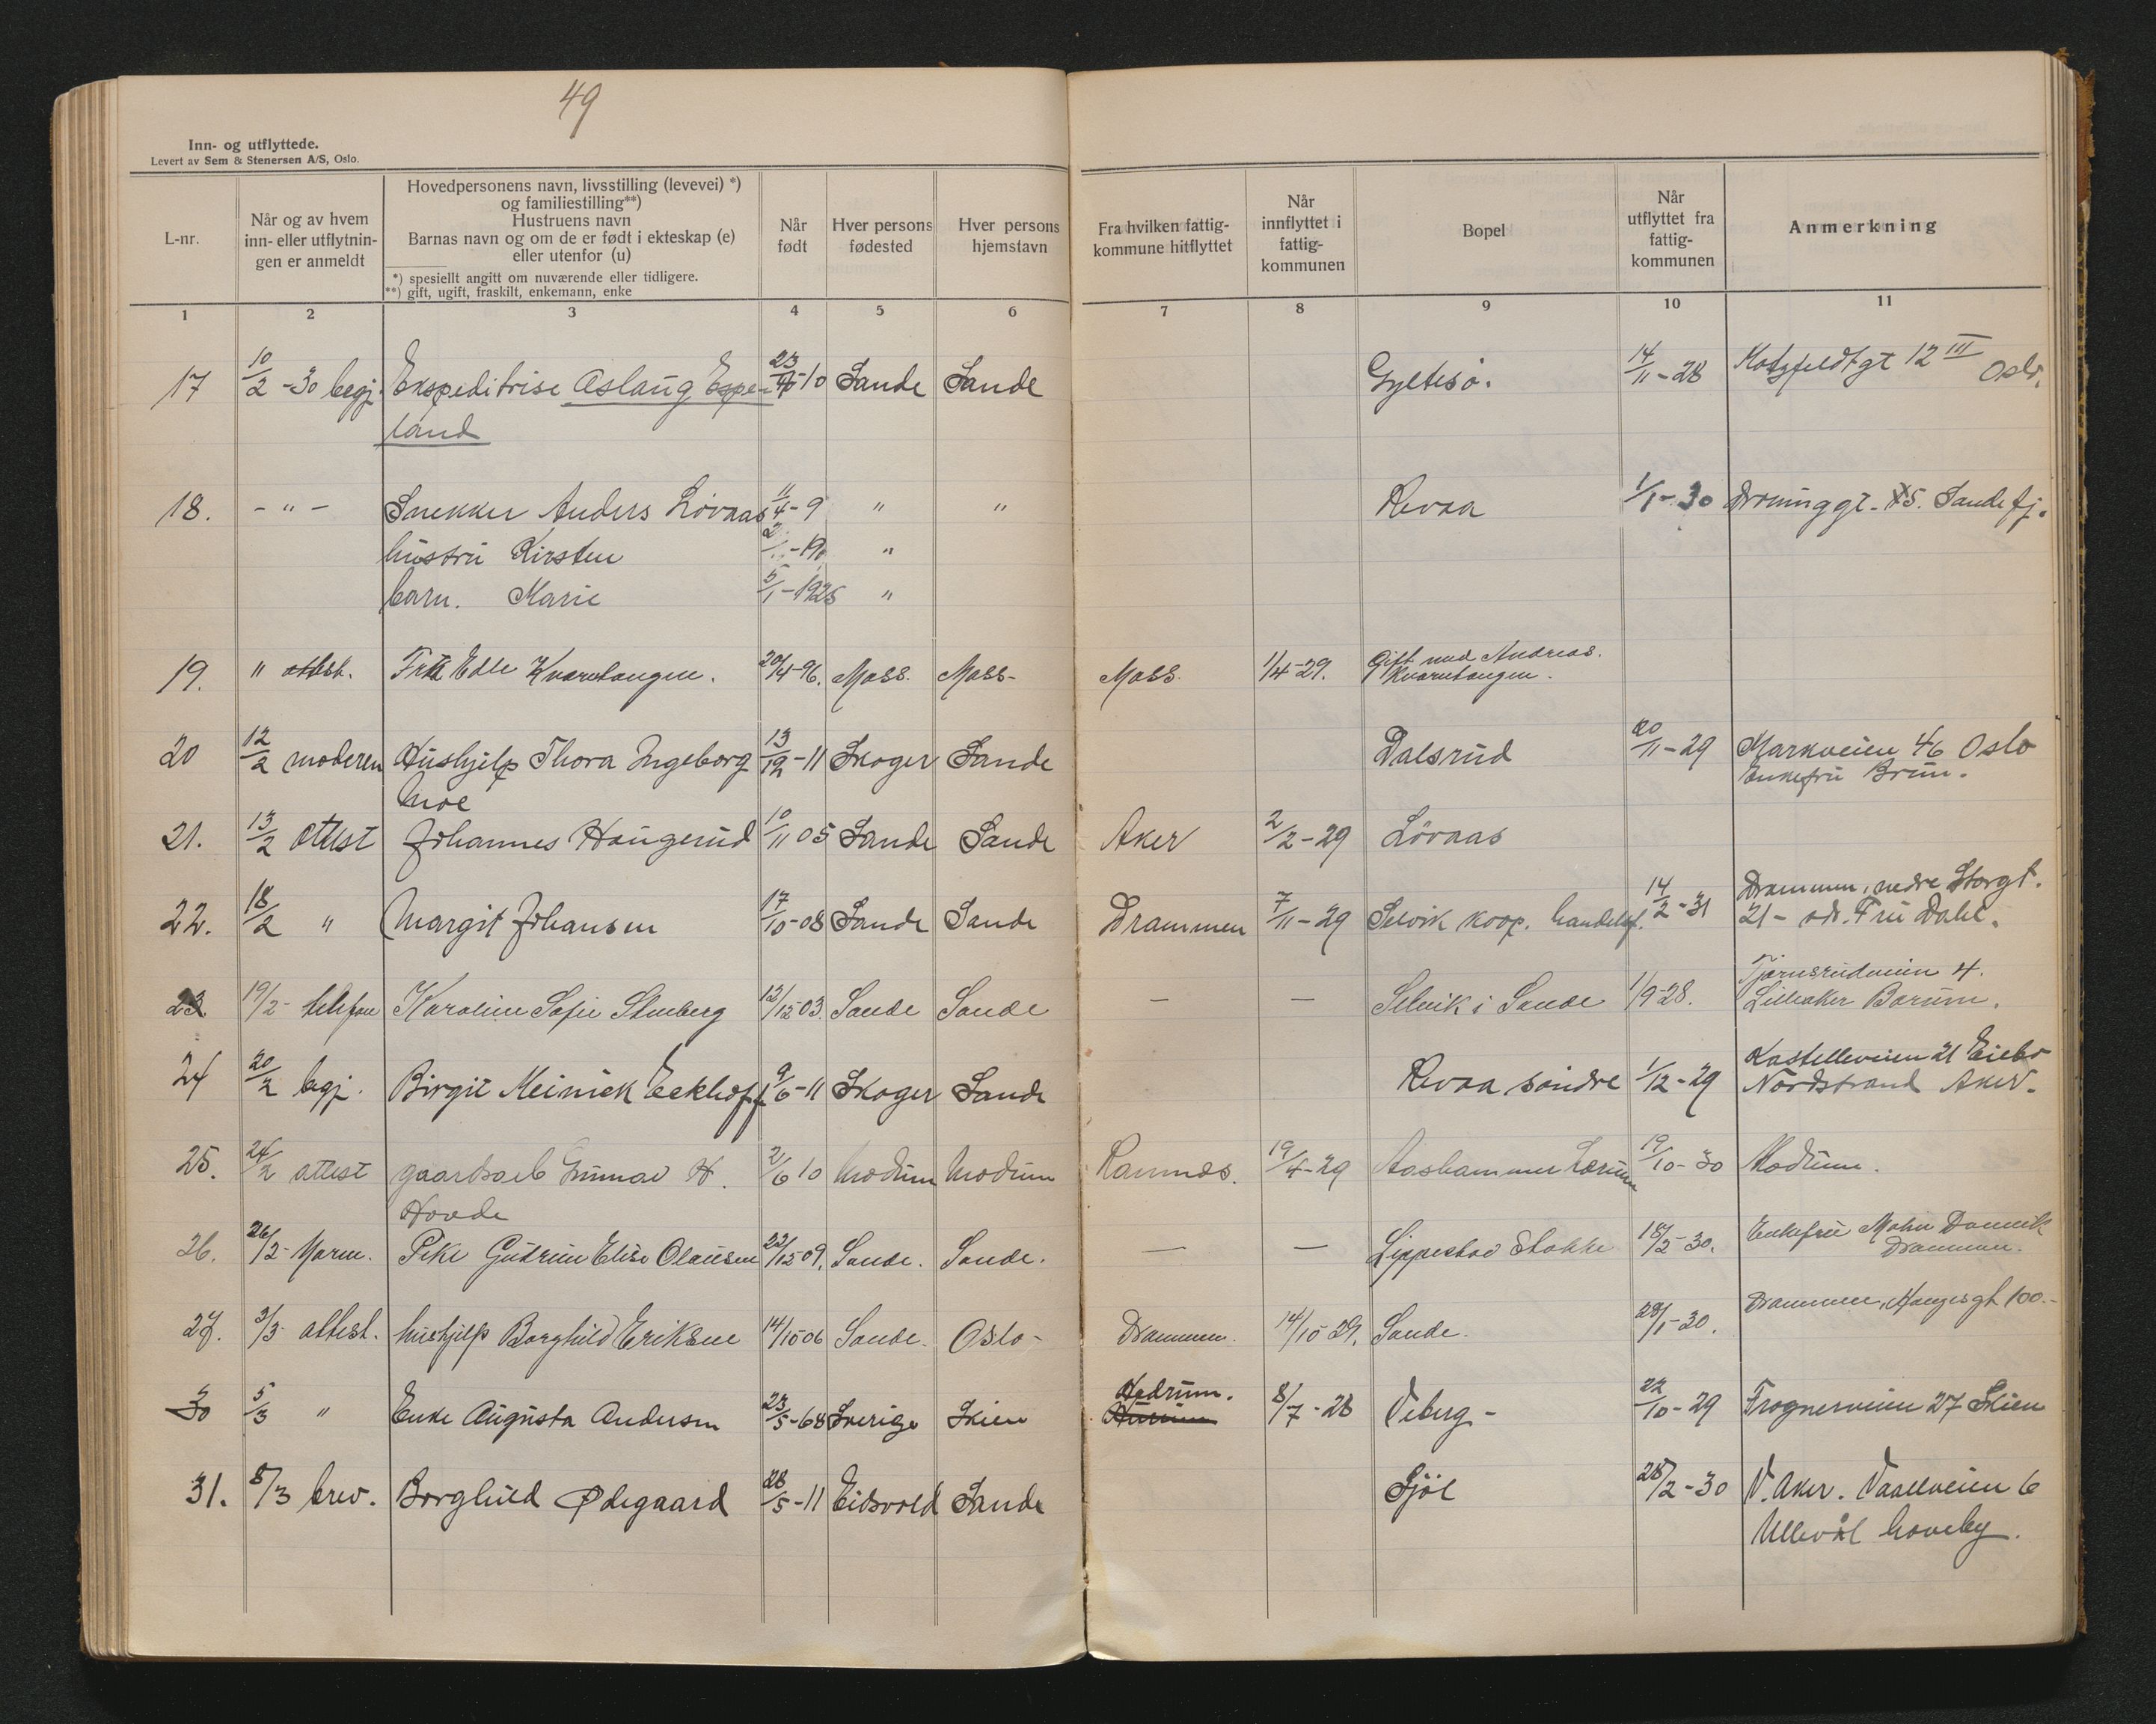 49
Inn- og utflyttede.
Levert av Sem & Stenersen A/S, Oslo.
L-nr.
Når og av hvem
inn- eller utflytnin-
gen er anmeldt
Hovedpersonens navn, livsstilling (levevei) *)
og familiestilling**)
Hustruens navn
Barnas navn og om de er født i ekteskap (e)
eller utenfor (u)
*) spesiellt angitt om nuværende eller tidligere.
**) gift, ugift, fraskilt, enkemann, enke
Når
født
Hver persons
fødested
Hver persons
hjemstavn
Fra hvilken fattig-
kommune hitflyttet
Når
innflyttet i
fattig-
kommunen
Bopel
Når
utflyttet fra
fattig-
kommunen
Anmerkning
1 2 3 4 5 6 7 8 9 10 11
17 10/2-30 begj. Ekspeditrise Aslaug Espe- 23 -10 Sande Sande Gyltesø. 14/11-28 gt 12 III Oslo.
land
18. - " - Snekker Anders Løvaas 11/4-9 " " Revaa 1/1-30 Dronninggt. 5. Sandefj.
hustru Kirsten "
barn. Marie 5/1-1925 "
19. " attest. Edle Kvarntangen. 20/4-96. Moss. Moss- Moss. 1/4-29. Gift med Andreas.
Kvarntangen.
20 12/2 moderen Hushjelp Thora Ingeborg 13/12-11 Skoger Sande Dalsrud 20/11-29 Markveien 46 Oslo
Moe Enkefru Brun.
21. 13/2 attest Johannes Haugerud 10/11 05 Sande Sande Aker 2/2-29 Løvaas
22. 18/2 " Margit Johansen 17/10-08 Sande Sande Drammen 7/11-29 Selvik koop. handelsf. 14/2-31 Drammen, nedre Storgt.
21- adr. Fru Dahl.
23 19/2- telefon Karoline Sofie Stenberg 12/12 03. Sande Sande — — Selvik i Sande 1/9-28. Tjernsrudveien 4.
Lilleaker Bærum.
24 20/2 begj. Birgit Meinick Eckhoff 9/6-11 Skoger Sande Revaa søndre 1/12-29 Kastelleveien 21 Eiebo
Nordstrand Aker.
25. 24/2 attest gaardsarb Gunnar H. 2/6 10 Modum Modum Ramnes. 19/4-29 Aashammer Lerum 19/10-30 Modum.
Hovde
26. 26/2- Pike Gudrun Elise Olausen 22/12 09. Sande. Sande. — — Lippestad Stokke 18/2-30. Enkefru Mohn Danvik
Drammen.
27. 3/3 attest. hushjelp Borghild Eriksen 14/10 06 Sande. Oslo- Drammen. 14/10 29. Sande. 28/1-30. Drammen, Haugesgt 100.-
30 5/3 " Enke Augusta Andersen 23/5-68 Sverige Skien Hedrum. 8/7-28 Viberg- 22/10-29 Frognerveien 27 Skien
31. 8/3 brev. Borghild Ødegaard 28/5-11 Eidsvold Sande Sjøl 28/2-30 V. Aker. Vaallveien 6
Ullevål haveby.